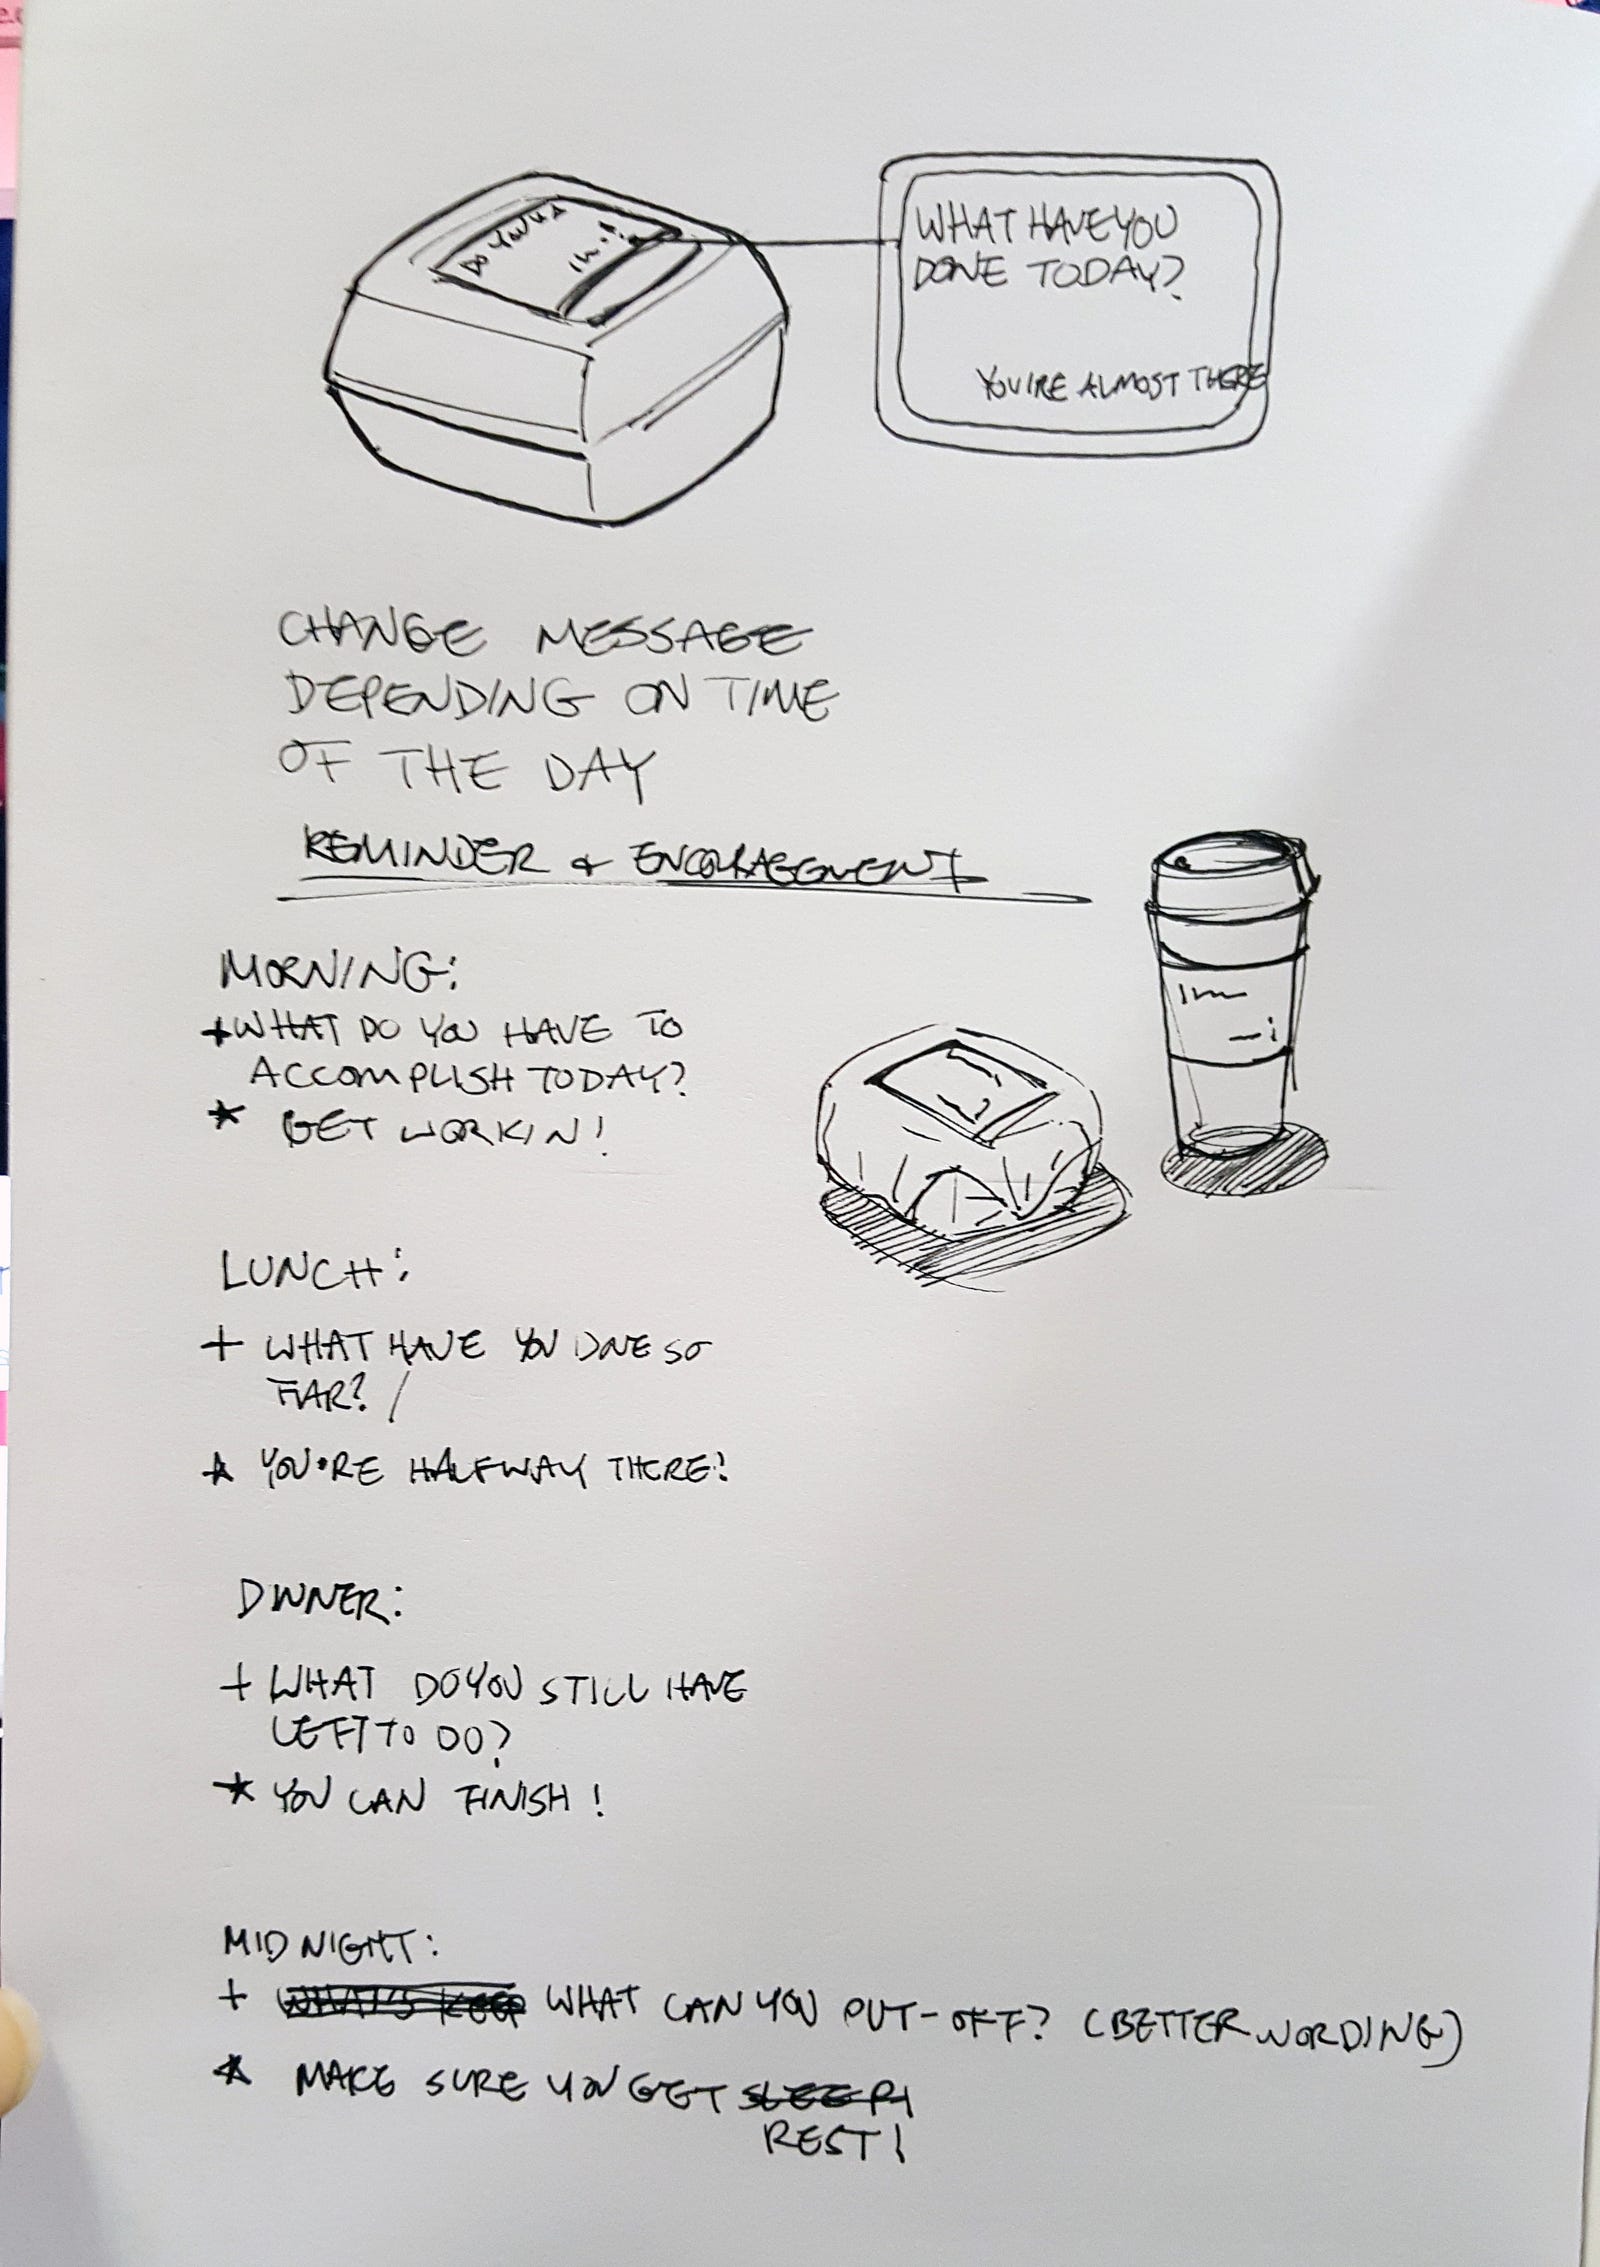 WHAT HAVE YOU
DONE TODAY?
YOU'RE ALMOST THERE
CHANGE MESSAGE
DEPENDING ON TIME
OF THE DAY
REMINDER & ENCOURAGEMENT
MORNING:
+ WHAT DO YOU HAVE TO
ACCOMPLISH TODAY?
* GET WORKIN!
LUNCH:
+ WHAT HAVE YOU DONE SO
FAR? /
* YOU'RE HALFWAY THERE!
DINNER:
+ WHAT DO YOU STILL HAVE
LEFT TO DO?
* YOU CAN FINISH!
MIDNIGHT:
+ WHAT'S KEEP WHAT CAN YOU PUT-OFF? (BETTER WORDING)
* MAKE SURE YOU GET SLEEP!
REST!